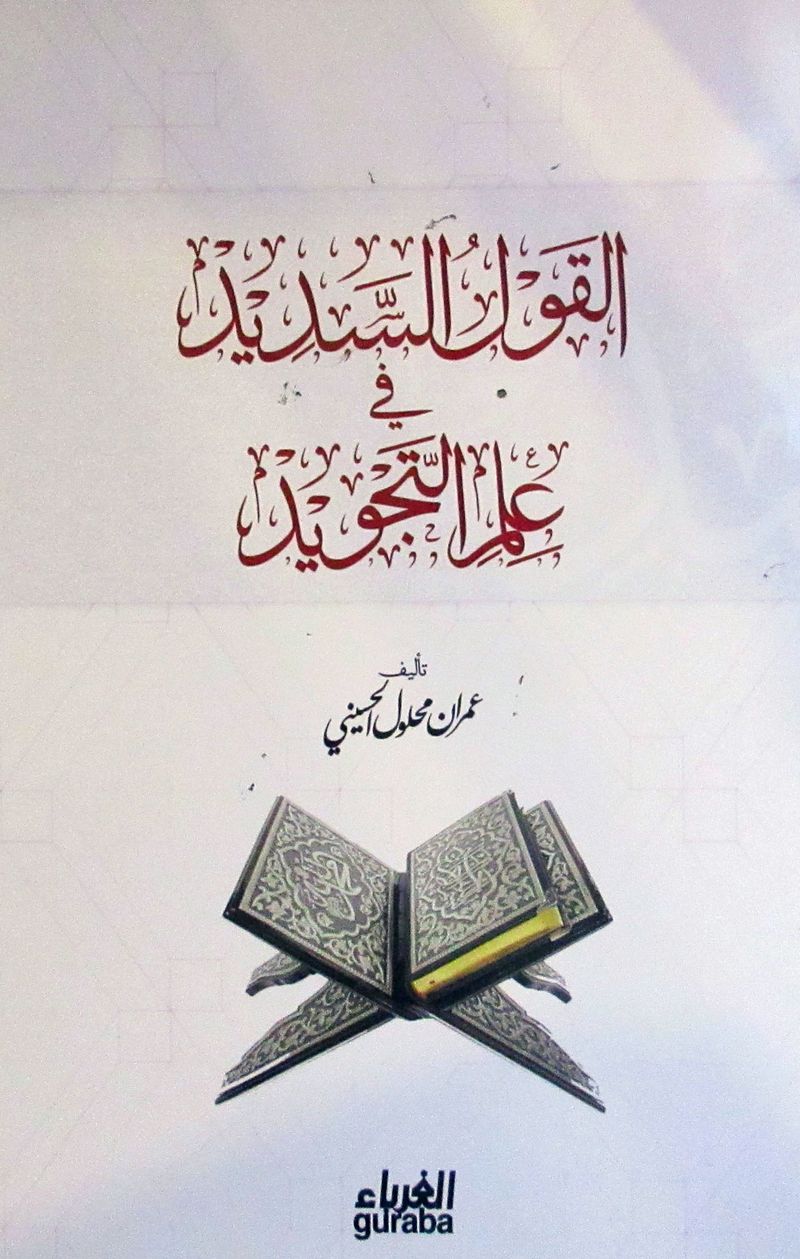 القَوْلُ السَّدِيد
في
عِلمِ التَّجْوِيد
تأليف
عمران محلول الحسيني
الغرباء
guraba